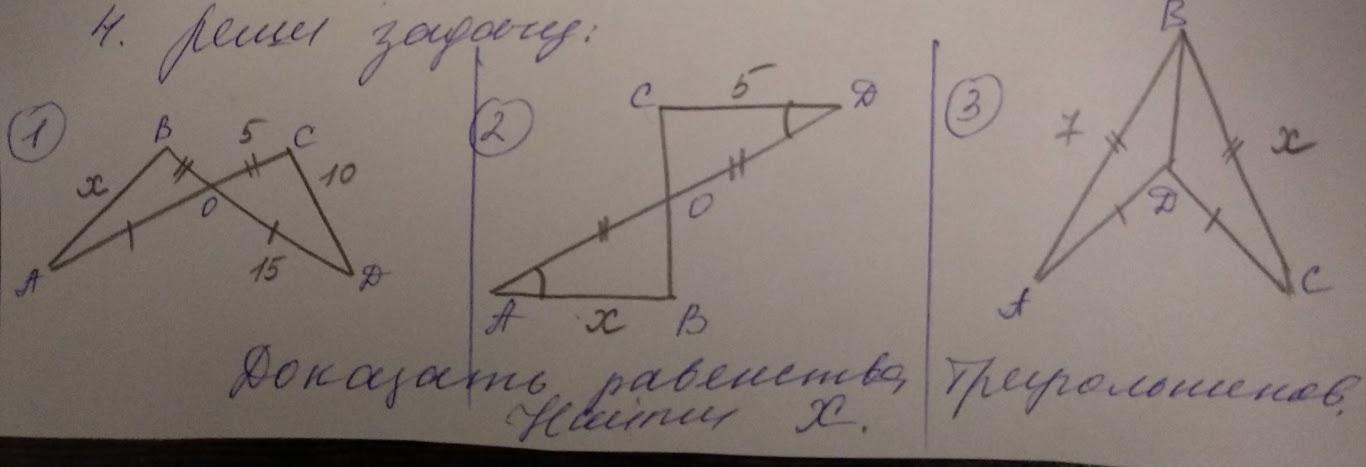 4. Реши задачу:
1
B
5
C
x
10
O
A
15
D
2
C
5
D
O
A
x
B
3
B
7
x
D
A
C
Доказать равенства треугольников.
Найти X.